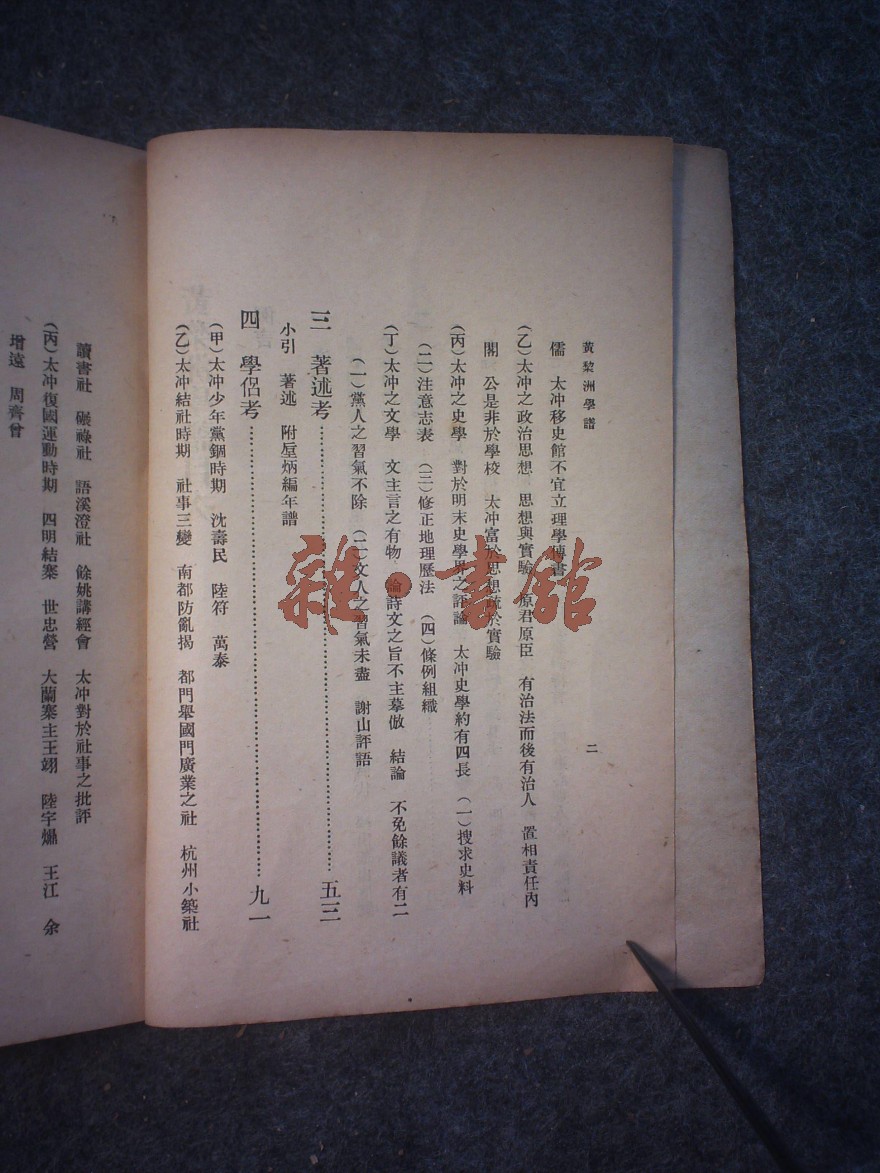 黃黎洲學譜
二
儒　太冲移史館不宜立理學傳書
(乙)太冲之政治思想　思想與實驗　原君原臣　有治法而後有治人　置相責任內
閣　公是非於學校　太冲富於思想疏於實驗
(丙)太冲之史學　對於明末史學界之評論　太冲史學約有四長　(一)搜求史料
(二)注意志表　(三)修正地理歷法　(四)條例組織
(丁)太冲之文學　文主言之有物　論詩文之旨不主摹倣　結論　不免餘議者有二
(一)黨人之習氣不除　(二)文人之習氣未盡　謝山評語
三　著述考……五三
小引　著述　附垕炳編年譜
四　學侶考……九一
(甲)太冲少年黨錮時期　沈壽民　陸符　萬泰
(乙)太冲結社時期　社事三變　南都防亂揭　都門舉國門廣業之社　杭州小築社
讀書社　磔祿社　語溪澄社　餘姚講經會　太冲對於社事之批評
(丙)太冲復國運動時期　四明結寨　世忠營　大蘭寨主王翊　陸宇㷿　王江　余
增遠　周齊曾
雜·書館